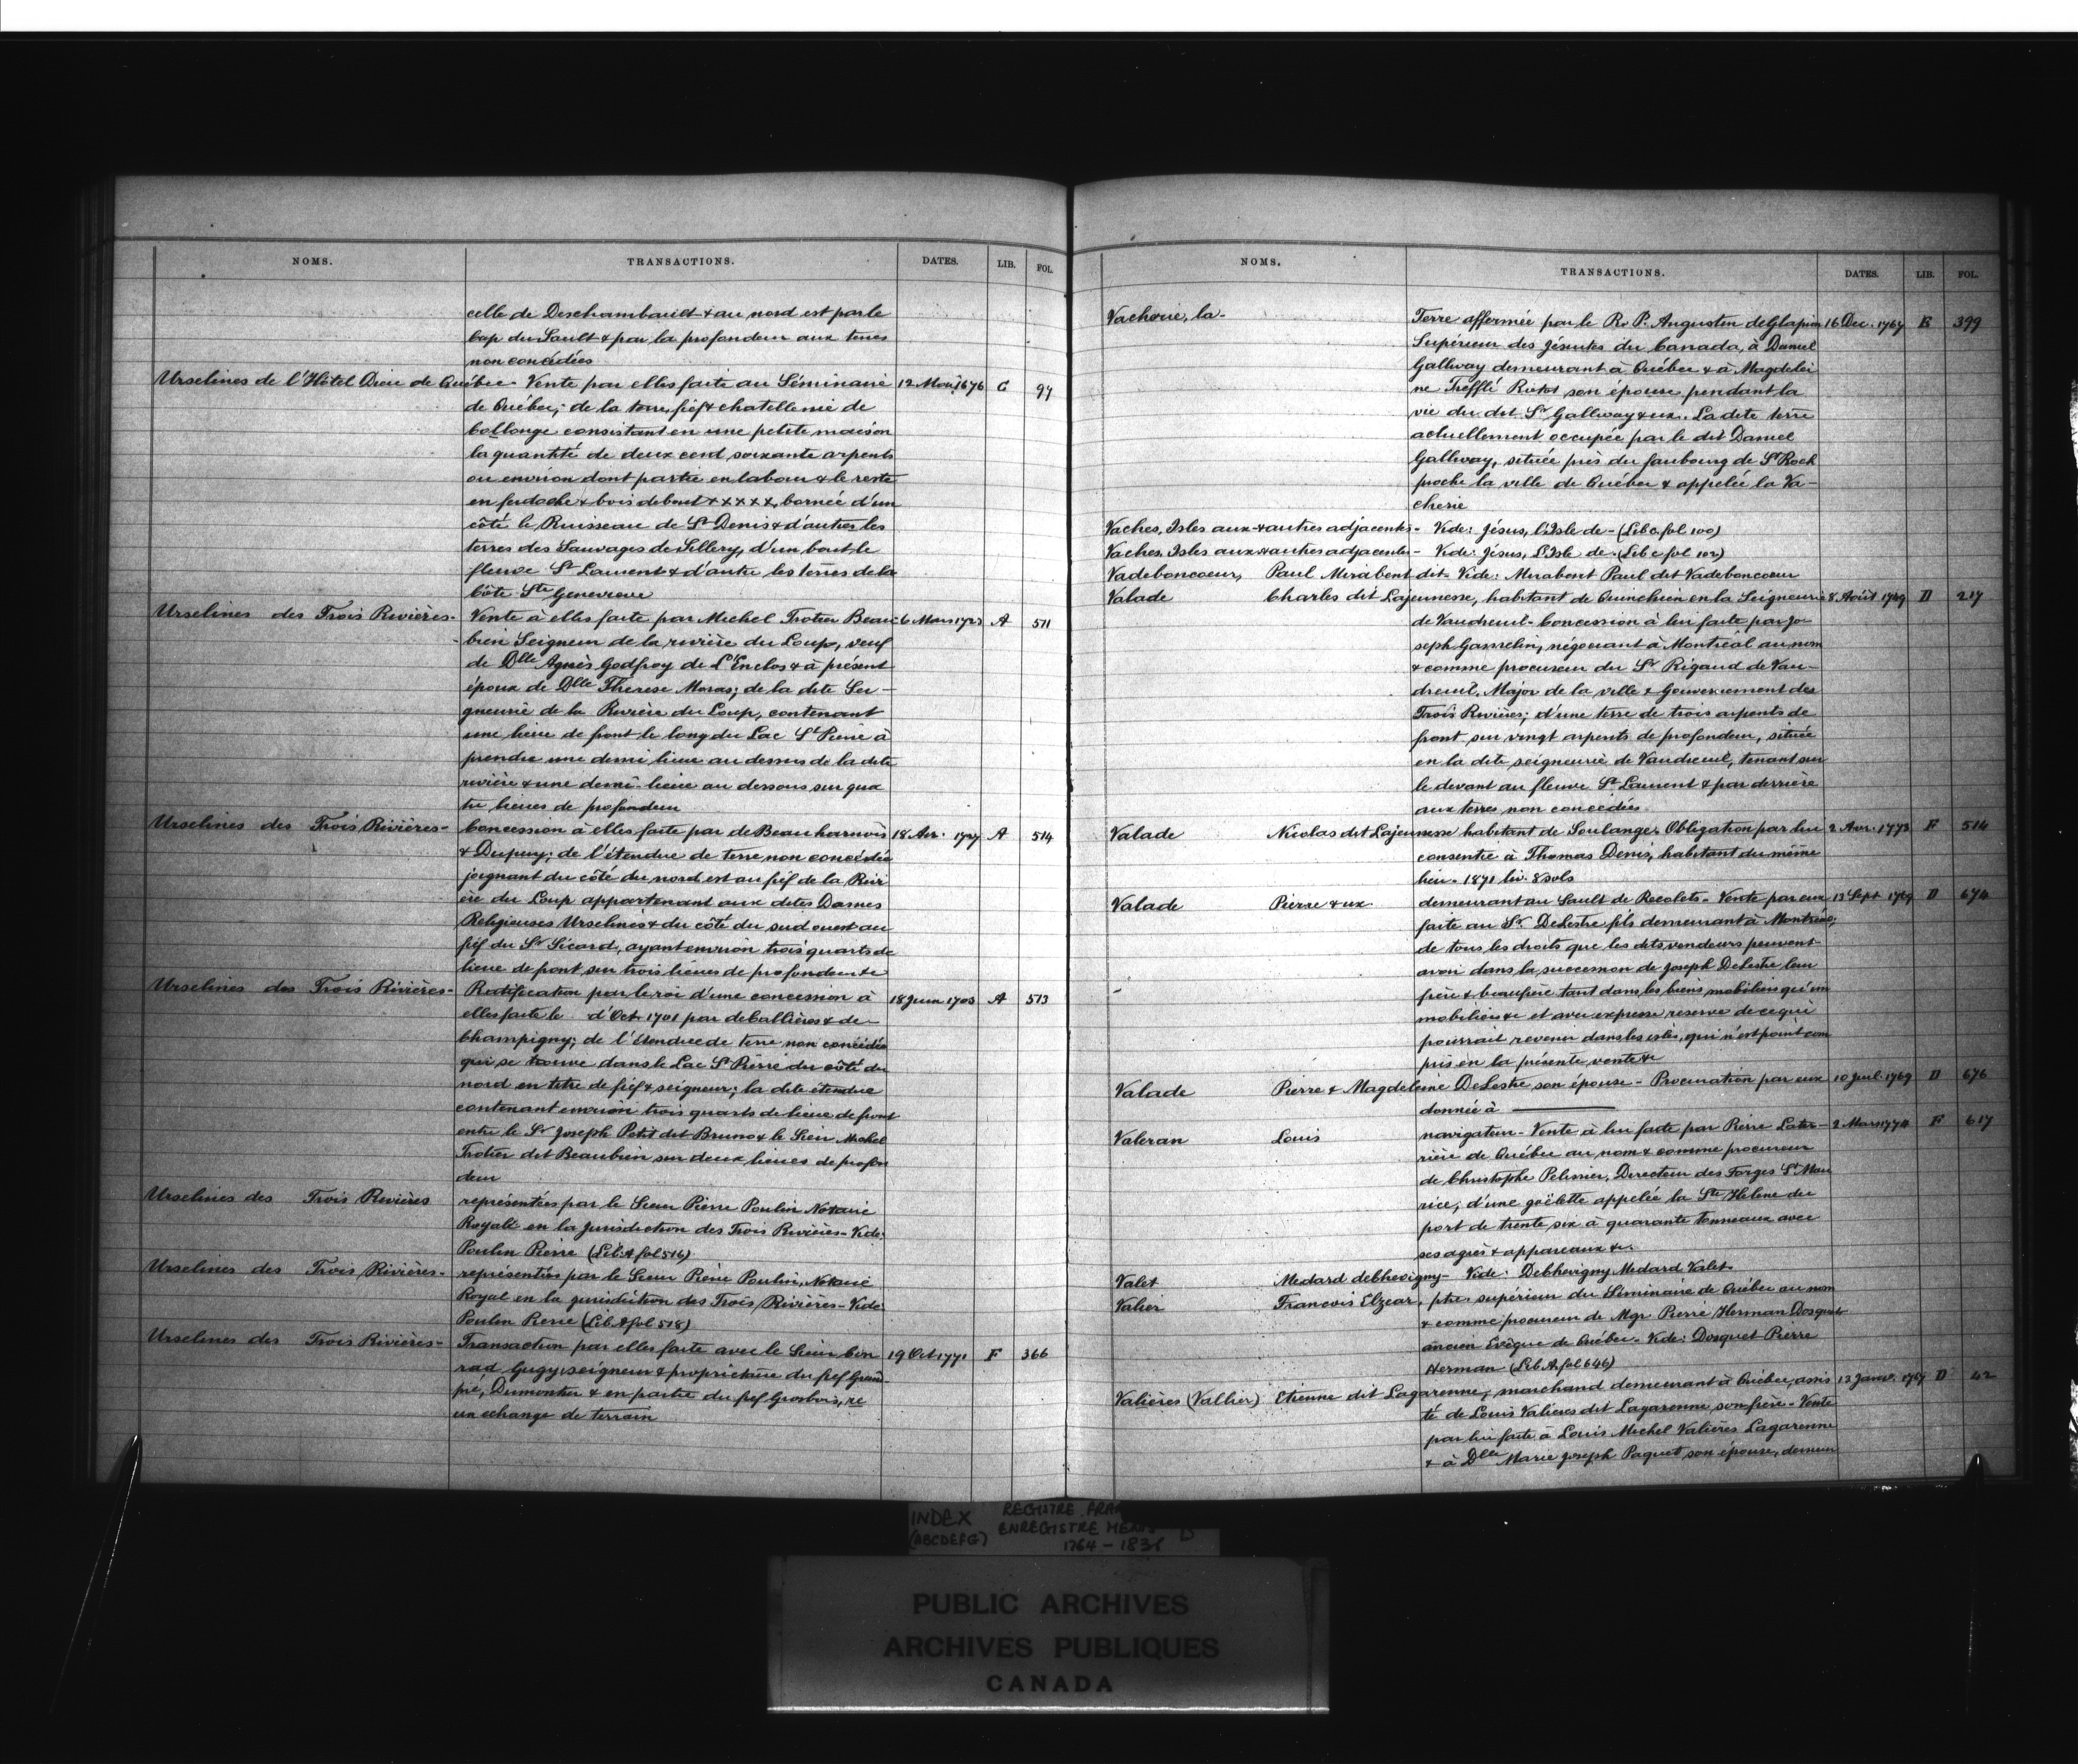 NOMS. TRANSACTIONS. DATES. LIB. FOL.
celle de Deschambault & au nord est par le
Cap du Sault & par la profondeur aux terres
non concédées
Urselines de l'Hôtel Dieu de Québec - Vente par elles faite au Séminaire 12 Mars 1676 C 97
de Québec; de la terre, fief & chatellenie de
Collonge consistant en une petite maison
la quantité de deux cent soixante arpents
ou environ dont partie en labour & le reste
en ferdoche & bois debout x x x x x, bornée d'un
côté le Ruisseau de St Denis & d'autres les
terres des Sauvages de Sillery, d'un bout le
fleuve St Laurent & d'autre les terres de la
Côte Ste Genevieve
Urselines des Trois Rivières - Vente à elles faite par Michel Trotier Beau- 6 Mars 1723 A 511
bien Seigneur de la rivière du Loup, veuf
de Dlle Agnès Godfroy de L'Enclos & à présent
époux de Dlle Therese Moras; de la dite Sei-
gneurie de la Rivière du Loup, contenant
une lieue de front le long du Lac St Pierre à
prendre une demi lieue au dessus de la dite
rivière & une demi-lieue au dessous sur qua
tre lieues de profondeur
Urselines des Trois Rivières - Concession à elles faite par de Beauharnois 18 Avr. 1727 A 514
& Dupuy; de l'étendue de terre non concédée
joignant du côté du nord est au fief de la Rivi
ère du Loup appartenant aux dites Dames
Religieuses Urselines & du côté du sud ouest au
fief du Sr Sicard, ayant environ trois quarts de
lieue de front sur trois lieues de profondeur &c
Urselines des Trois Rivières - Ratification par le roi d'une concession à 18 Juin 1703 A 513
elles faite le d'Oct. 1701 par de Callières & de
Champigny; de l'étendue de terre non concédée
qui se trouve dans le Lac St Pierre du côté du
nord en titre de fief & seigneur; la dite étendue
contenant environ trois quarts de lieue de front
entre le Sr Joseph Petit dit Bruno & le Sieur Michel
Trotier dit Beaubien sur deux lieues de profon
deur
Urselines des Trois Rivières représentées par le Sieur Pierre Poulin Notaire
Royale en la jurisdiction des Trois Rivières - Vide:
Poulin Pierre (Lib. A fol 516)
Urselines des Trois Rivières - représentées par le Sieur Pierre Poulin, Notaire
Royal en la jurisdiction des Trois Rivières - Vide:
Poulin Pierre (Lib. A fol 518)
Urselines des Trois Rivières - Transaction par elles faite avec le Sieur Con 19 Oct 1771 F 366
rad Gugy, seigneur & propriétaire du fief Grand
pré, Dumontier & en partie du fief Grosbois, re
un echange de terrain
NOMS. TRANSACTIONS. DATES. LIB. FOL.
Vacherie, la - Terre affermée par le Rv. P. Augustin de Glapion 16 Dec. 1767 E 399
Supérieur des Jésuites du Canada, à Daniel
Gallway demeurant à Québec & à Magdelei
ne Trefflé Rottot son épouse pendant la
vie du dit Sr Gallway & ux. La dite terre
actuellement occupée par le dit Daniel
Gallway, située près du faubourg de St Roch
proche la ville de Québec & appelée la Va-
cherie
Vaches, Isles aux & autres adjacentes - Vide: Jésus, l'Isle de - (Lib C fol 100)
Vaches, Isles aux & autres adjacentes - Vide: Jésus, L'Isle de - (Lib C fol 102)
Vadeboncoeur, Paul Mirabent dit - Vide: Mirabent Paul dit Vadeboncoeur
Valade Charles dit Lajeunesse, habitant de Quinchien en la Seigneurie 8 Août 1749 D 217
de Vaudreuil - Concession à lui faite par Jo
seph Gamelin, négociant à Montréal au nom
& comme procureur du Sr Rigaud de Vau-
dreuil, Major de la ville & Gouvernement des
Trois Rivières; d'une terre de trois arpents de
front sur vingt arpents de profondeur, située
en la dite seigneurie de Vaudreuil, tenant sur
le devant au fleuve St Laurent & par derrière
aux terres non concédées
Valade Nicolas dit Lajeunesse habitant de Soulange - Obligation par lui 2 Avr. 1773 F 514
consentie à Thomas Denis, habitant du même
lieu - 1871 liv. 8 sols
Valade Pierre & ux demeurant au Sault de Recolets - Vente par eux 13 Sept 1769 D 674
faite au Sr DeLestre fils demeurant à Montréal;
de tous les droits que les dits vendeurs peuvent
avoir dans la succession de Joseph DeLestre leur
frère & beaufrère tant dans les biens mobiliers qu'im
mobiliers &c et avec expresse reserve de ce qui
pourrait revenir dans les , qui n'est point com
pris en la présente vente &c
Valade Pierre & Magdeleine DeLestre son épouse - Procuration par eux 10 Juil. 1769 D 676
donnée à
Valeran Louis navigateur - Vente à lui faite par Pierre Later- 2 Mars 1774 F 617
rière de Québec au nom & comme procureur
de Christophe Pelissier, Directeur des Forges St Mau
rice, d'une goëlette appelée la Ste Helene du
port de trente six à quarante tonneaux avec
ses agrès & appareaux &c.
Valet Medard deChevigny - Vide: DeChevigny Medard Valet
Valier Francois Elzear, ptre supérieur du Séminaire de Québec au nom
& comme procureur de Mgr Pierre Herman Dosquet
ancien Evêque de Québec - Vide: Dosquet Pierre
Herman (Lib. A fol 646)
Valières (Vallier) Etienne dit Lagarenne, marchand demeurant à Québec, assis 13 Janv. 1767 D 42
té de Louis Valieres dit Lagarenne, son père - Vente
par lui faite à Louis Michel Valières Lagarenne
& à Dlle Marie Joseph Paquet son épouse, demeu
INDEX REGISTRE
(ABCDEFG) ENREGISTREMENTS B
1764 - 183
PUBLIC ARCHIVES
ARCHIVES PUBLIQUES
CANADA